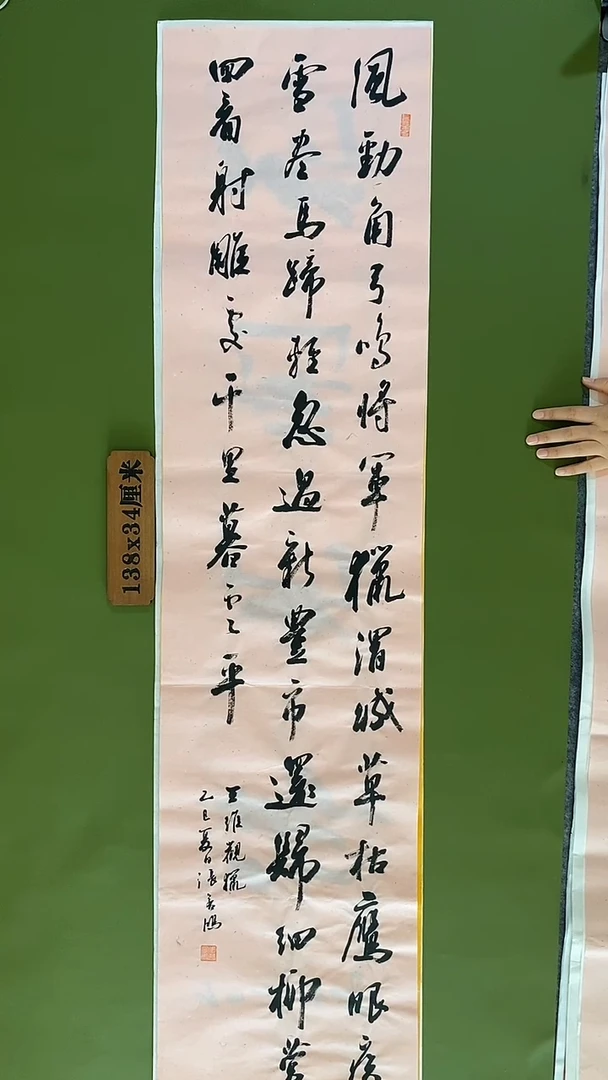 風勁角弓鳴將軍獵渭城草枯鷹眼疾
雪盡馬蹄輕忽過新豐市還歸細柳營
回看射雕處千里暮雲平
王維觀獵
乙巳夏日張
138x34厘米